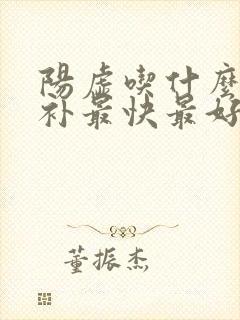 陽虛喫什麼
补最快最好
董振杰